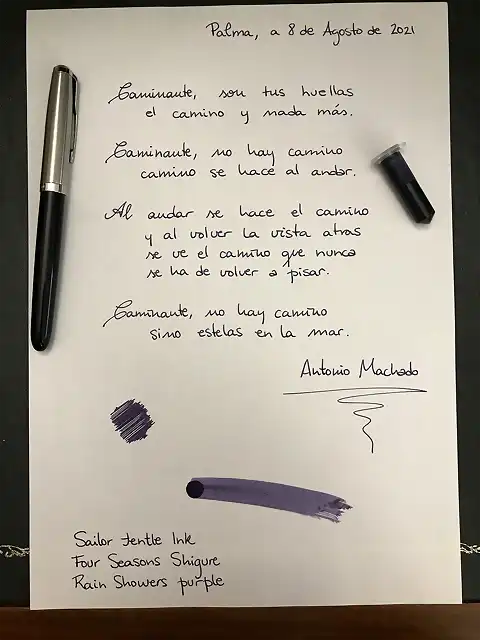 Palma, a 8 de Agosto de 2021
Caminante, son tus huellas
el camino y nada más.
Caminante, no hay camino
camino se hace al andar.
Al andar se hace el camino
y al volver la vista atras
se ve el camino que nunca
se ha de volver a pisar.
Caminante, no hay camino
sino estelas en la mar.
Antonio Machado
Sailor Jentle Ink
Four Seasons Shigure
Rain Showers purple